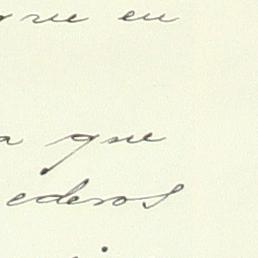 que en
a que
ederos